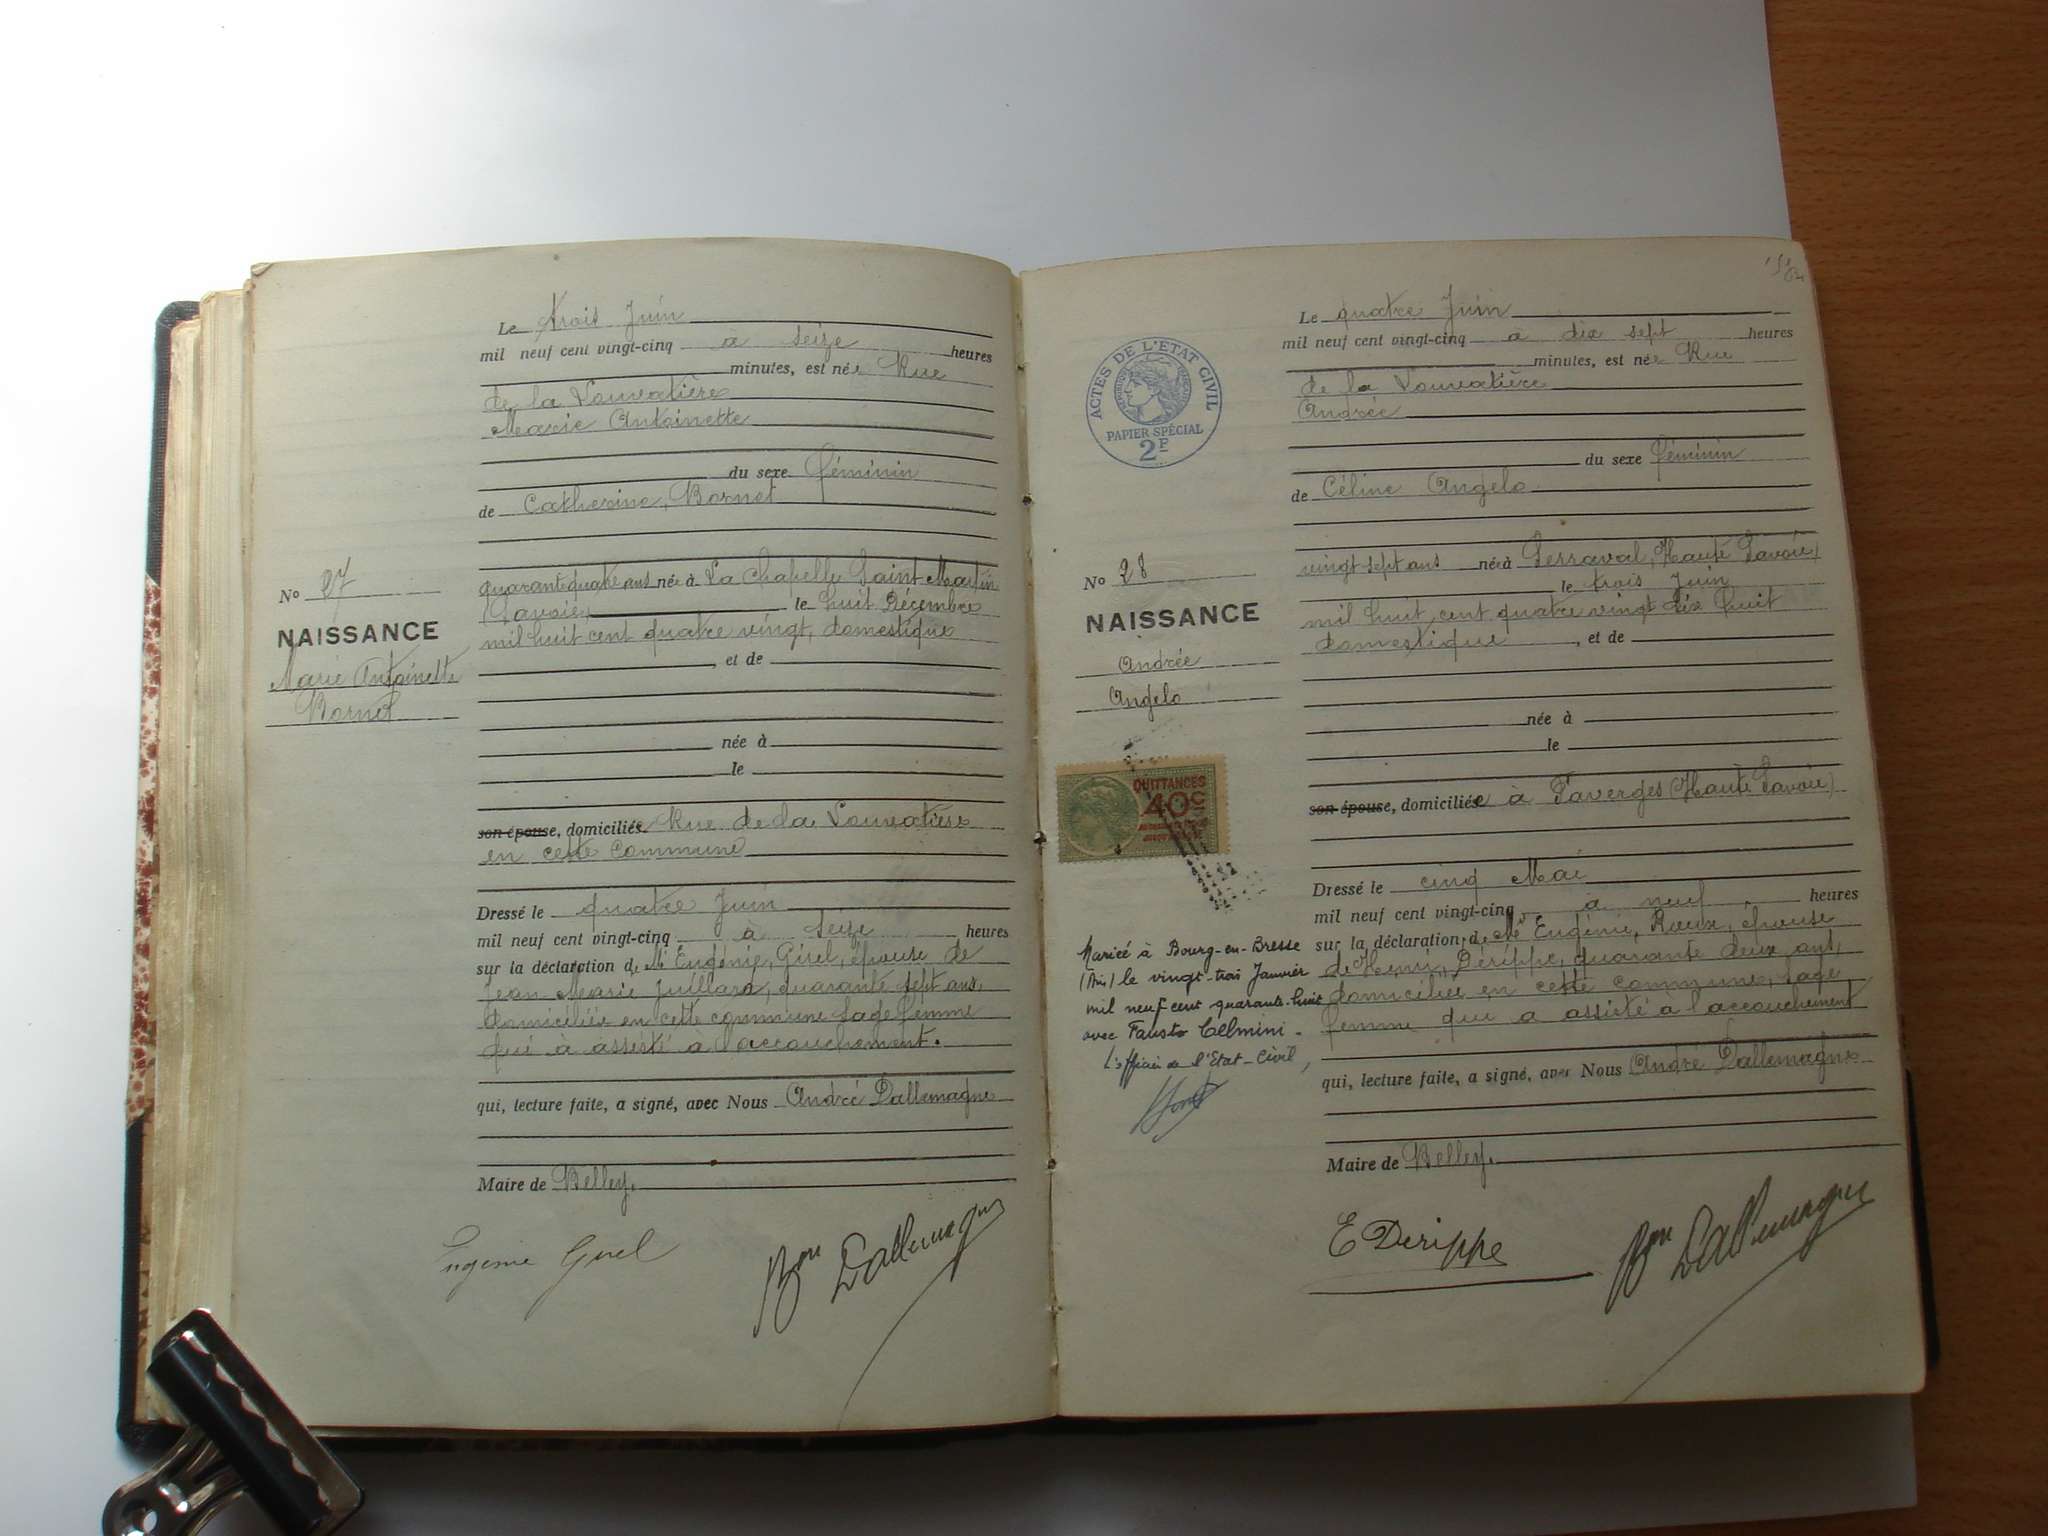 Le trois Juin
mil neuf cent vingt-cinq à seize heures
minutes, est née Rue
de la Louvatière
Marie Antoinette
du sexe féminin
de Catherine, Bornet
No 27
NAISSANCE
Marie Antoinette
Bornet
quarante quatre ans née à La Chapelle Saint Martin
(Savoie) le huit Décembre
mil huit cent quatre vingt, domestique
, et de
née à
le
son épouse, domiciliée Rue de la Louvatière
en cette commune
Dressé le quatre Juin
mil neuf cent vingt-cinq à seize heures
sur la déclaration de Me Eugénie, Girel, épouse de
Jean Marie Juillard, quarante sept ans,
domiciliée en cette commune sage femme
qui à assisté a l'accouchement.
qui, lecture faite, a signé, avec Nous André Dallemagne
Maire de Belley.
Eugenie Girel
Bon Dallemagne
Le quatre Juin
mil neuf cent vingt-cinq à dix sept heures
minutes, est née Rue
de la Louvatière
Andrée
du sexe féminin
de Céline Angelo
ACTES DE L'ETAT CIVIL
PAPIER SPÉCIAL
2F
No 28
NAISSANCE
Andrée
Angelo
QUITTANCES
40c
vingt sept ans née à Serraval, (Haute Savoie)
le trois Juin
mil huit cent quatre vingt dix huit
domestique, et de
née à
le
son épouse, domiciliée à Faverges (Haute Savoie)
Dressé le cinq Mai
mil neuf cent vingt-cinq, à neuf heures
sur la déclaration de Me Eugénie, Roux, épouse
de Henri, Dérippe, quarante deux ans,
domiciliée en cette commune, sage
femme qui a assisté à l'accouchement
qui, lecture faite, a signé, avec Nous André Dallemagne
Maire de Belley.
Mariée à Bourg-en-Bresse
(Ain) le vingt-trois Janvier
mil neuf cent quarante-huit
avec Fausto Celmini.
L'officier de l'Etat-Civil,
E Derippe
Bon Dallemagne